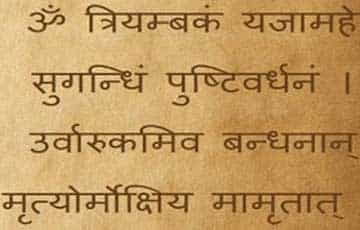 ॐ त्रियम्बकं यजामहे
सुगन्धिं पुष्टिवर्धनं ।
उर्वारुकमिव बन्धनान्
मृत्योर्मोक्षिय मामृतात्